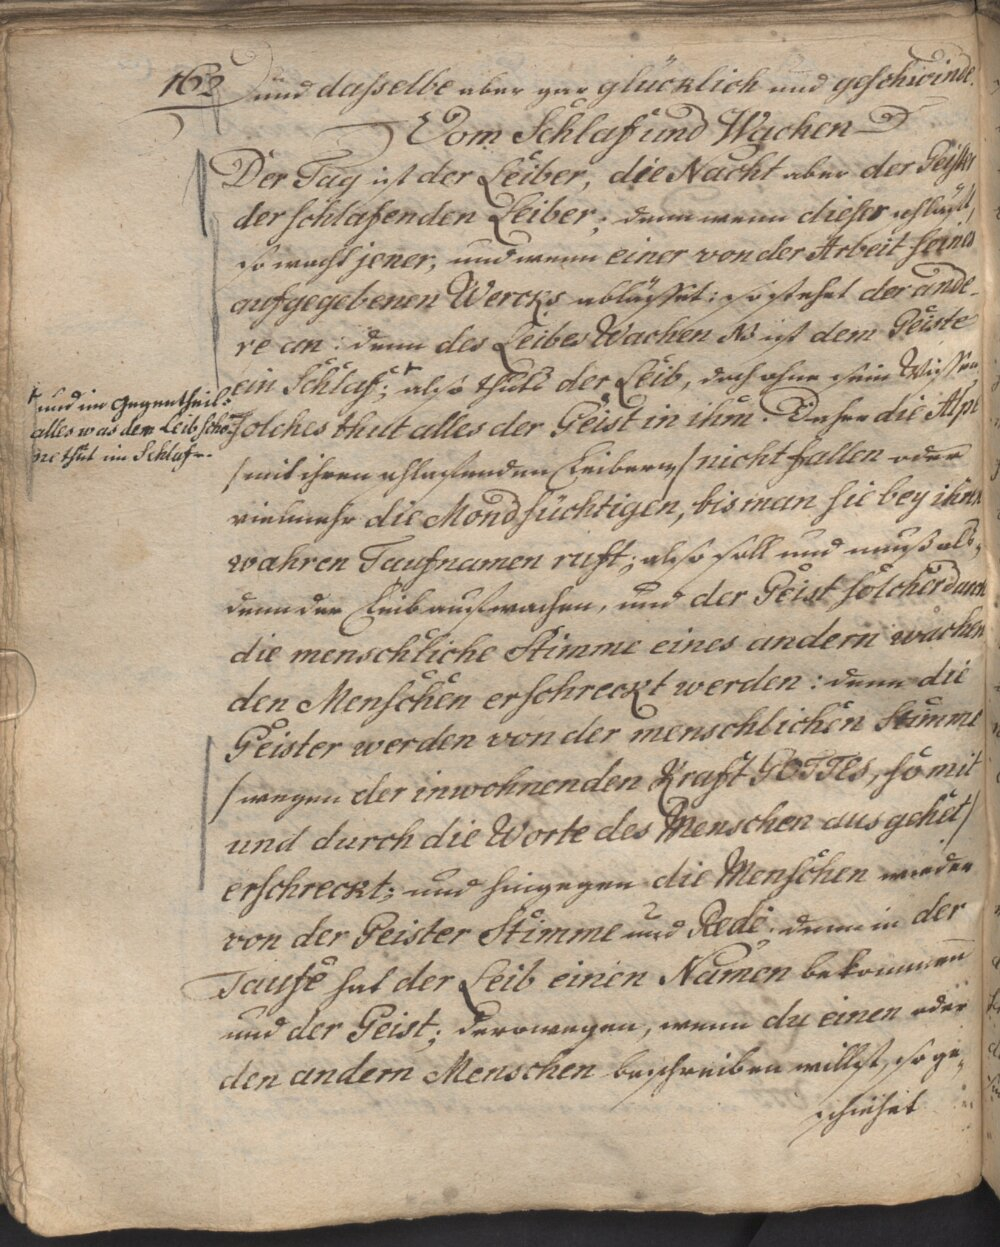 162
und dasselbe aber gar glücklich und geschwinde.
Vom Schlaf und Wachen
Der Tag ist der Leiber, die Nacht aber der Geister
der schlafenden Leiber; denn wenn dieser schläft,
so wacht jener, und wenn einer von der Arbeit seines
aufgegebenen Wercks ablässet: so stehet der ande-
re an: denn des Leibes Wachen ist dem Geiste
ein Schlaf; + also thuts der Leib, doch ohne sein Wissen
+ und im Gegentheil
alles was der Leib
thut im Schlaf.
solches thut alles der Geist in ihm. Daher die
/mit ihren schlafenden Leibern/ nicht fallen oder
vielmehr die Mondsüchtigen, bis man sie bey ihren
wahren Taufnamen ruft; also soll und muß als-
denn der Leib aufwachen, und der Geist solcher durch
die menschliche Stimme eines andern wachen
den Menschen erschreckt werden: denn die
Geister werden von der menschlichen Stimme
/wegen der inwohnenden Kraft GOTTes, so mit
und durch die Worte des Menschen ausgehet/
erschreckt; und hingegen die Menschen wieder
von der Geister Stimme und Rede; denn in der
Taufe hat der Leib einen Namen bekommen
und der Geist; derowegen, wenn du einen oder
den andern Menschen beschreiben willst, so ge-
schiehet